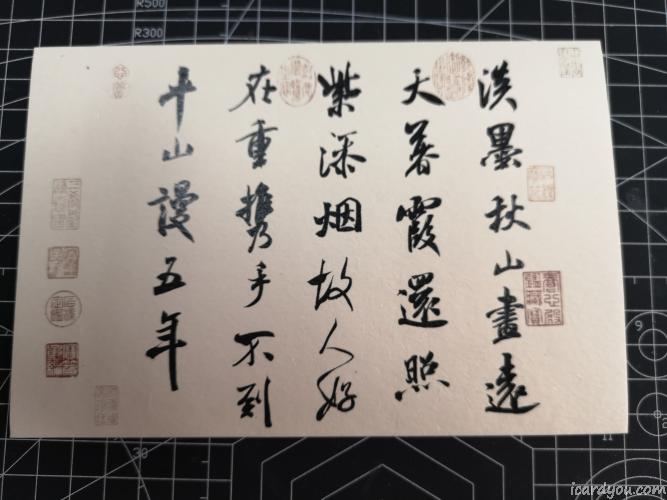 淡墨秋山畫遠
天暮霞還照
紫添烟故人好
在重携手不到
平山謾五年
R500
R300
30
9
11
icardyou.com